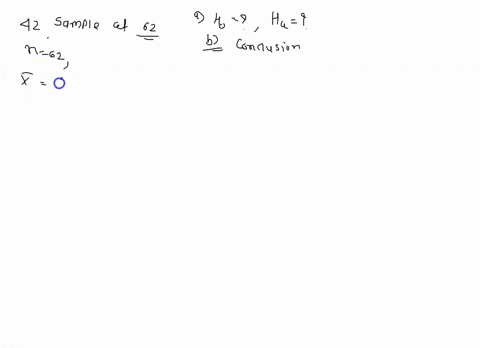 42 Sample at 62
n=62,
x̄ = 0
a) H₀ = ?, Hₐ = ?
b) Conclusion